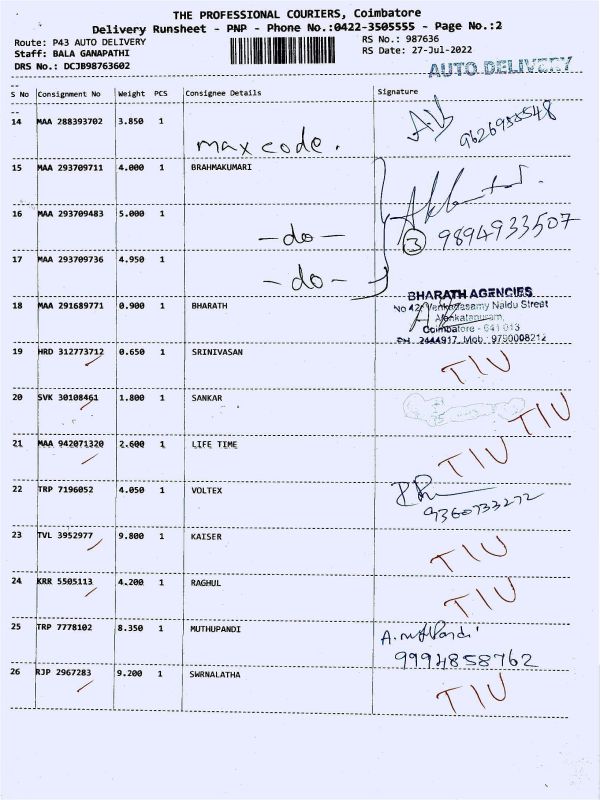 THE PROFESSIONAL COURIERS, Coimbatore
Delivery Runsheet - PNP - Phone No.:0422-3505555 - Page No.:2
Route: P43 AUTO DELIVERY
RS No.: 987636
Staff: BALA GANAPATHI
RS Date: 27-Jul-2022
DRS No.: DCJB98763602
AUTO DELIVERY
S No Consignment No Weight PCS Consignee Details Signature
14 MAA 288393702 3.850 1 max code. 9626958548
15 MAA 293709711 4.000 1 BRAHMAKUMARI
16 MAA 293709483 5.000 1 -do- 3 9894933507
17 MAA 293709736 4.950 1 -do-
18 MAA 291689771 0.900 1 BHARATH
BHARATH AGENCIES
No 42, Venkadasamy Naidu Street
Coimbatore - 641 013
PH: 2444917 Mob: 9790008212
19 HRD 312773712 0.650 1 SRINIVASAN TIU
20 SVK 30108461 1.800 1 SANKAR TIU
21 MAA 942071320 2.600 1 LIFE TIME TIU
22 TRP 7196052 4.050 1 VOLTEX 9360733272
23 TVL 3952977 9.800 1 KAISER TIU
24 KRR 5505113 4.200 1 RAGHUL TIU
25 TRP 7778102 8.350 1 MUTHUPANDI A. muthPandi
9994858762
26 RJP 2967283 9.200 1 SWRNALATHA TIU